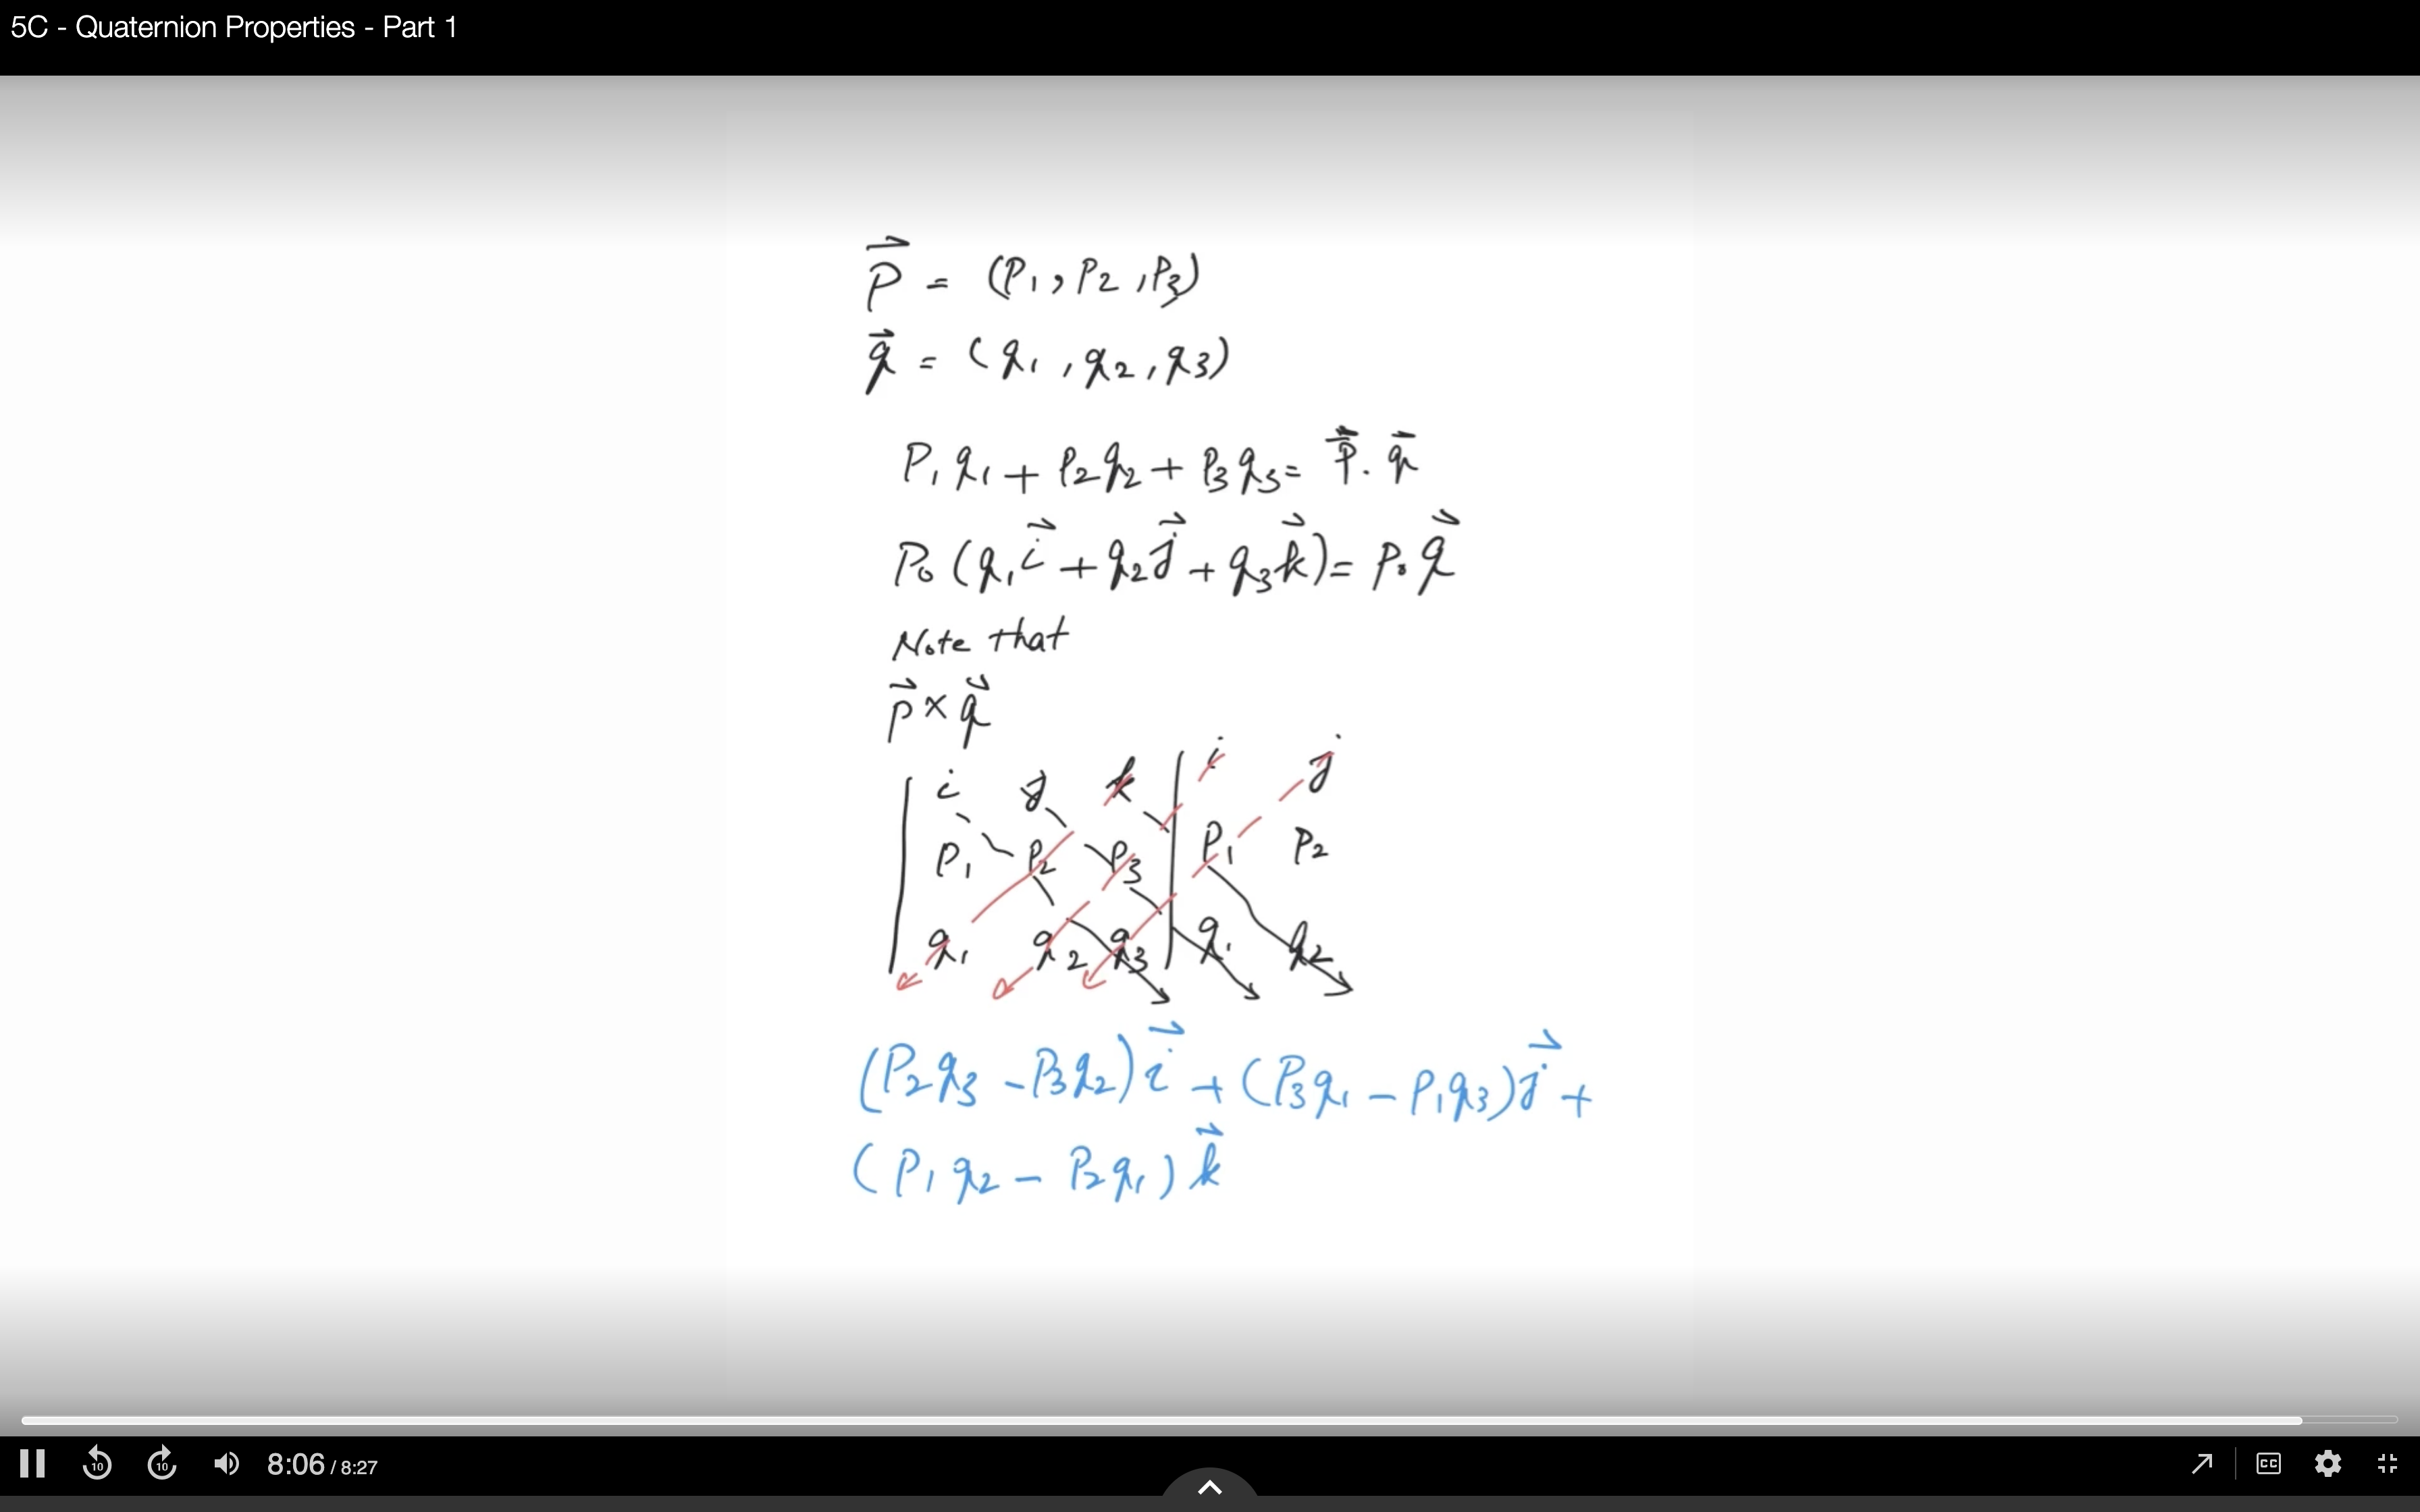 5C - Quaternion Properties - Part 1
P⃗ = (P₁, P₂, P₃)
q⃗ = (q₁, q₂, q₃)
P₁q₁ + P₂q₂ + P₃q₃ = P⃗ . q⃗
P₀ (q₁i⃗ + q₂j⃗ + q₃k⃗) = P₀q⃗
Note that
p⃗ × q⃗
i j k | i j
P₁ P₂ P₃ | P₁ P₂
q₁ q₂ q₃ | q₁ q₂
(P₂q₃ - P₃q₂) i⃗ + (P₃q₁ - P₁q₃) j⃗ +
(P₁q₂ - P₂q₁) k⃗
10 10 8:06 / 8:27 CC